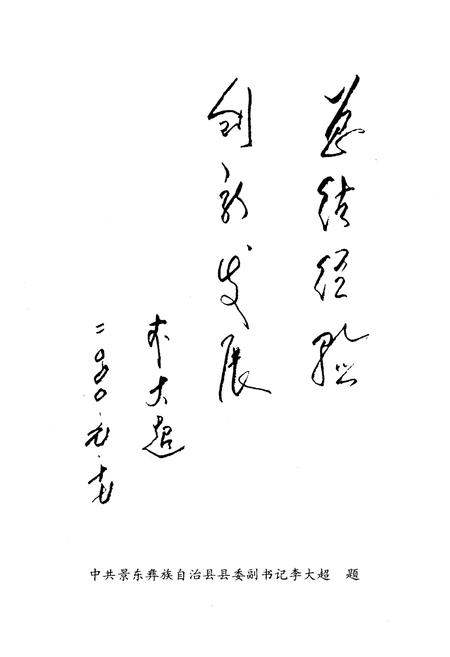 总结经验
创新发展
李大超
中共景东彝族自治县县委副书记李大超 题